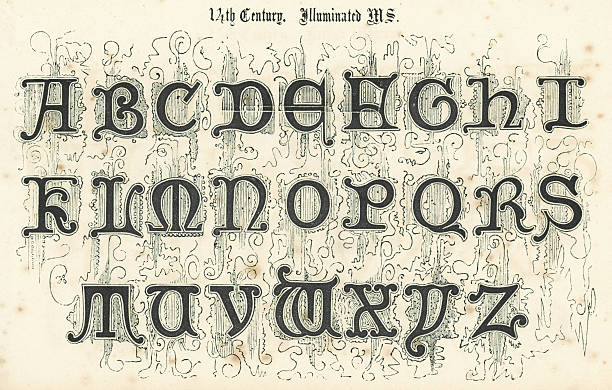 14th Century. Illuminated MS.
A B C D E F G h I
K L M N O P Q R S
T U V W X Y Z